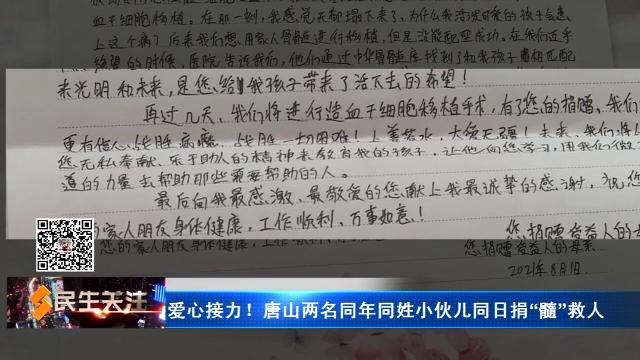 血干细胞移植。在那一刻,我感觉天都塌下来了,为什么我活泼可爱的孩子会患
上这个病?后来我们想用家人骨髓进行移植,但是没能配型成功。在我们近乎
绝望的时候,医院告诉我们,他们通过中华骨髓库找到了和我孩子
来光明和未来,是您给我孩子带来了活下去的希望!
再过几天、我们将进行造血干细胞移植手术,有了您的捐赠、我们
更有信心战胜病魔、战胜一切困难!上善若水,大爱无疆!未来、我们将
您无私奉献、乐于助人的精神来教育我的孩子,让他向您学习,用我们微
道的力量去帮助那些最要帮助的人。
最后向我最感激、最敬爱的您献上我最诚挚的感谢,祝您
家人朋友身体健康,工作顺利、万事如意!
您的家人朋友身体健康,工作
您捐赠受益人的母亲
2021年8月1日
民生关注
爱心接力!唐山两名同年同姓小伙儿同日捐“髓”救人